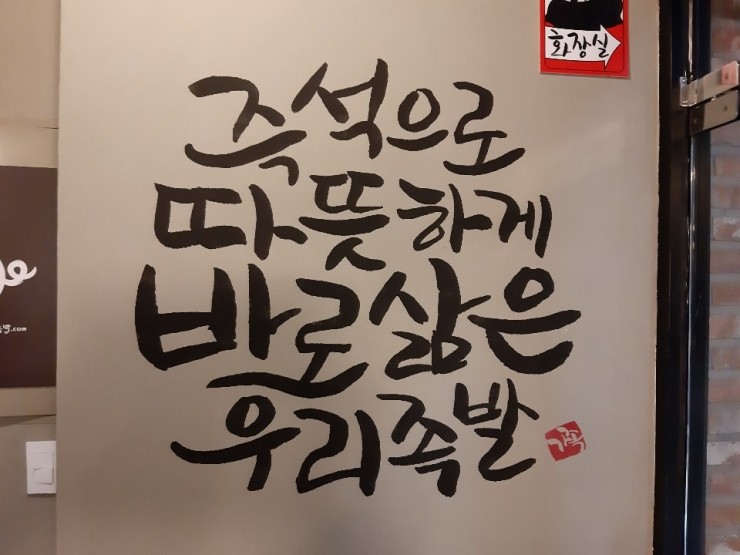 화장실
즉석으로
따뜻하게
바로삶은
우리족발